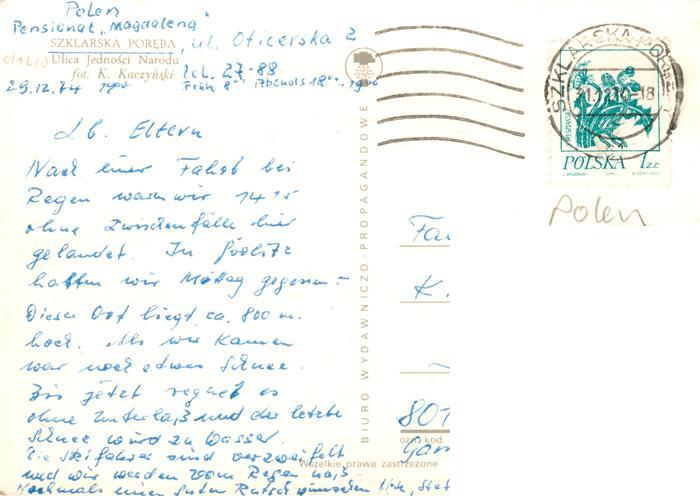 Polen
Pensionat „Magdalena"
SZKLARSKA PORĘBA, ul. Oficerska 2
Ulica Jedności Narodu
fot. K. Kaczyński
tel. 27-88
29.12.74 1900
Früh 800 Abends 1800-1900
Lb. Eltern
Nach einer Fahrt bei
Regen waren wir 1415
ohne Zwischenfälle hier
gelandet. In Görlitz
hatten wir Mittag gegessen.-
Dieser Ort liegt ca. 800 m.
hoch. Als wir kamen
war noch etwas Schnee.
Bis jetzt regnet es
ohne Unterlaß und der letzte
Schnee wird zu Wasser.
Die Skifahrer sind verzweifelt
und wir werden vom Regen naß.
Nochmals einen guten Rutsch wünschen
BIURO WYDAWNICZO-PROPAGANDOWE
Wszelkie prawa zastrzeżone
SZKLARSKA PORĘBA
POLSKA 1 ZŁ
Polen
Fa
K.
801
ozn. kod.